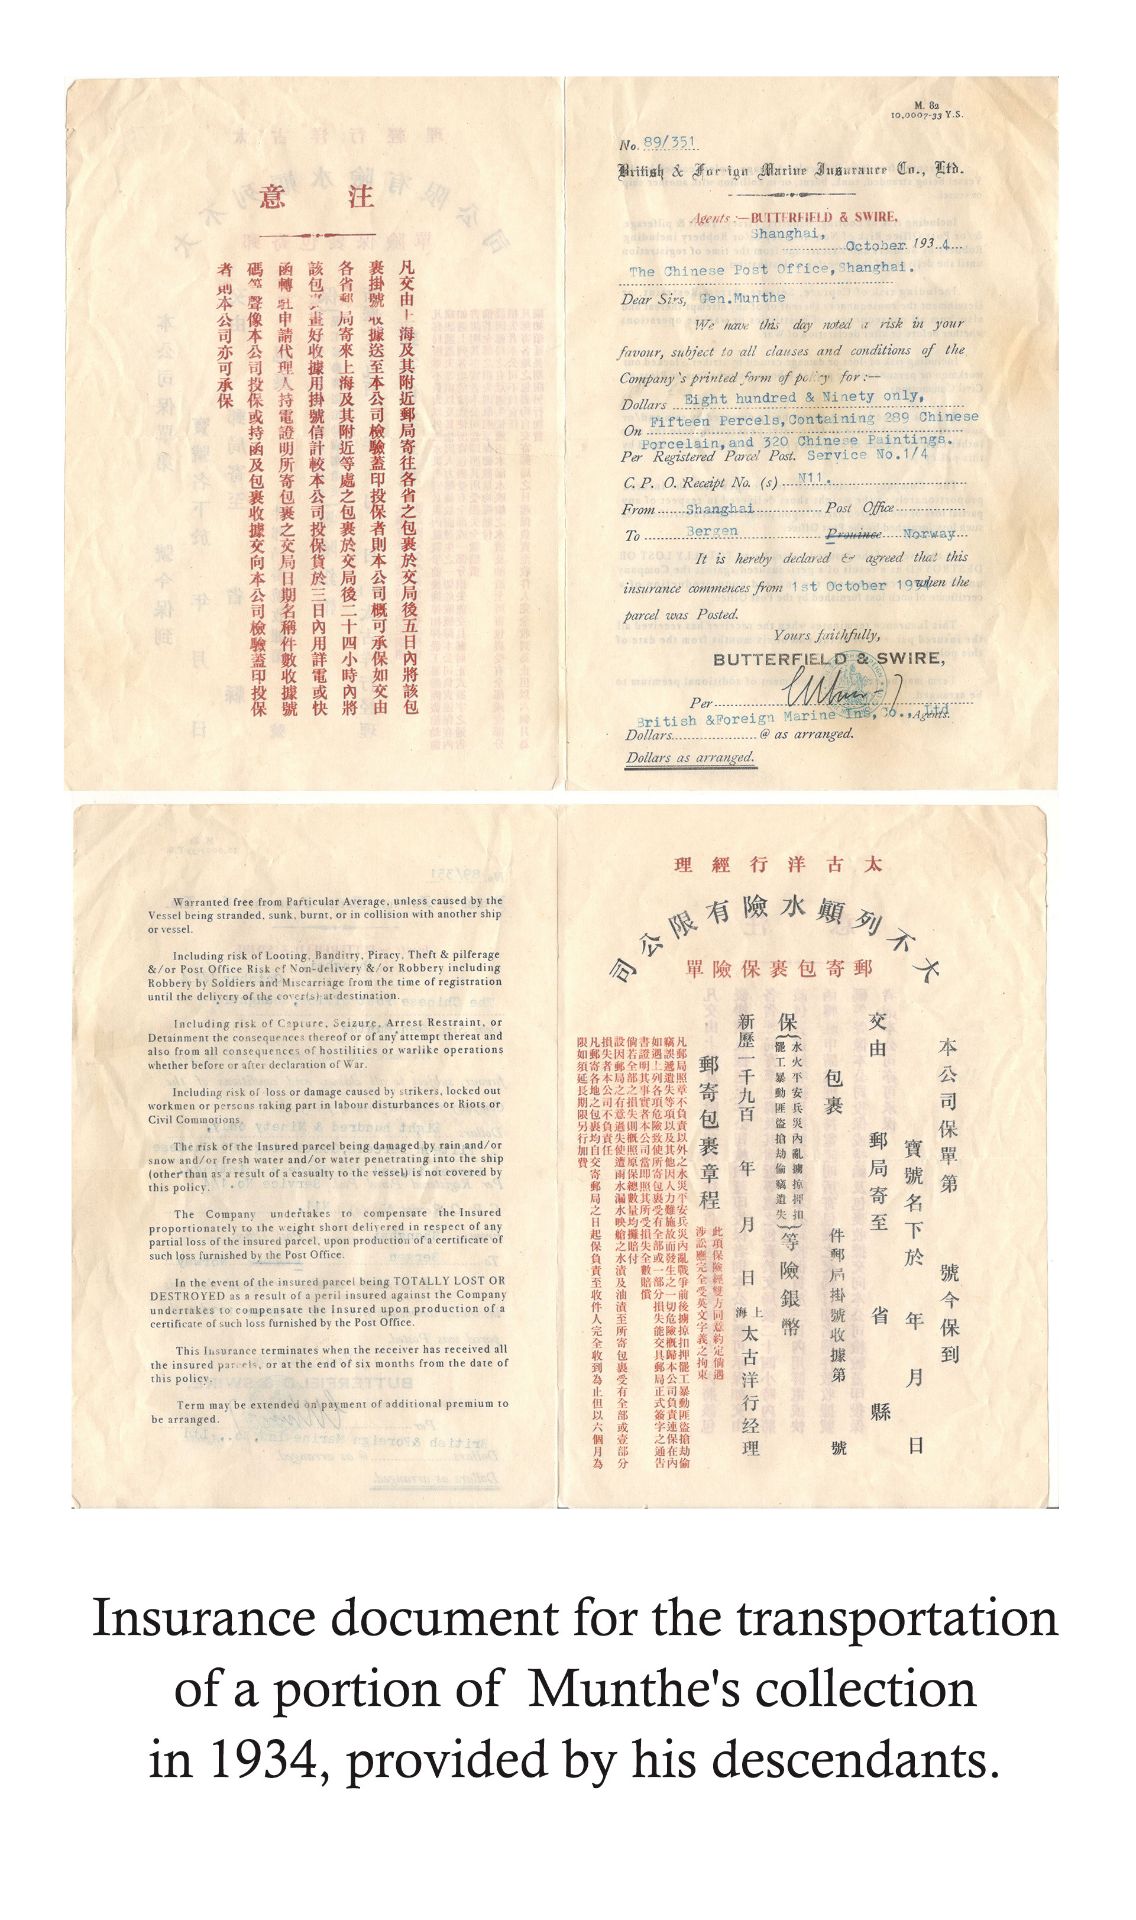 意 注
凡交由上海及其附近郵局寄往各省之包裹於交局後五日內將該包
裹掛號收據送至本公司檢驗蓋印投保者則本公司概可承保如交由
各省郵局寄來上海及其附近等處之包裹於交局後二十四小時內將
該包裹畫好收據用掛號信計較本公司投保貨於三日內用詳電或快
函轉駐申請代理人持電證明所寄包裹之交局日期名稱件數收據號
碼等聲像本公司投保或持函及包裹收據交向本公司檢驗蓋印投保
者則本公司亦可承保
M. 82
10,0007-33 Y.S.
No. 89/351
British & Foreign Marine Insurance Co., Ltd.
Agents:—BUTTERFIELD & SWIRE,
Shanghai, October 1934
The Chinese Post Office, Shanghai.
Dear Sirs, Gen. Munthe
We have this day noted a risk in your
favour, subject to all clauses and conditions of the
Company's printed form of policy for:—
Dollars Eight hundred & Ninety only,
On Fifteen Percels, Containing 289 Chinese
Porcelain, and 320 Chinese Paintings.
Per Registered Parcel Post. Service No.1/4
C. P. O. Receipt No. (s) N11.
From Shanghai Post Office
To Bergen Province Norway
It is hereby declared & agreed that this
insurance commences from 1st October 1934 when the
parcel was Posted.
Yours faithfully,
BUTTERFIELD & SWIRE,
Per
British & Foreign Marine Ins, Co., Ltd Agents.
Dollars @ as arranged.
Dollars as arranged.
Warranted free from Particular Average, unless caused by the
Vessel being stranded, sunk, burnt, or in collision with another ship
or vessel.
Including risk of Looting, Banditry, Piracy, Theft & pilferage
&/or Post Office Risk of Non-delivery &/or Robbery including
Robbery by Soldiers and Miscarriage from the time of registration
until the delivery of the cover(s) at destination.
Including risk of Capture, Seizure, Arrest Restraint, or
Detainment the consequences thereof or of any attempt thereat and
also from all consequences of hostilities or warlike operations
whether before or after declaration of War.
Including risk of loss or damage caused by strikers, locked out
workmen or persons taking part in labour disturbances or Riots or
Civil Commotions.
The risk of the Insured parcel being damaged by rain and/or
snow and/or fresh water and/or water penetrating into the ship
(other than as a result of a casualty to the vessel) is not covered by
this policy.
The Company undertakes to compensate the Insured
proportionately to the weight short delivered in respect of any
partial loss of the insured parcel, upon production of a certificate of
such loss furnished by the Post Office.
In the event of the insured parcel being TOTALLY LOST OR
DESTROYED as a result of a peril insured against the Company
undertakes to compensate the Insured upon production of a
certificate of such loss furnished by the Post Office.
This Insurance terminates when the receiver has received all
the insured parcels, or at the end of six months from the date of
this policy.
Term may be extended on payment of additional premium to
be arranged.
理經行洋古太
司公限有險水顚列不大
單險保裹包寄郵
本公司保單第 號今保到
寶號名下於 年 月 日
交由 郵局寄至 省 縣
包裹 件郵局掛號收據第 號
保
水火平安兵災內亂擄掠押扣
罷工暴動匪盜搶劫偷竊遺失
等險銀幣
新歷一千九百 年 月 日
上海太古洋行经理
郵寄包裹章程
此項保險經雙方同意約定倘遇
涉訟應完全受英文字義之拘束
凡郵局照章不負責以外之水災平安兵災內亂戰爭前後擄掠扣押罷工暴動匪盜搶劫偷
竊誤遞遺失等項以及其他因人力難施故而發生之一切危險概歸本公司負責連保在內
如遇上列各項危險致使所寄包裹受有全部或一部分損失能交具郵局正式簽字之通告
書證明其事實者本公司當即照其所受損失全數賠償
倘若全部之損失則概照原保總數量均攤賠付
設因郵局之有意過失使遭雨水漏水映艙之水漬及油漬至所寄包裹受有全部或壹部分
損失者本公司不負責任
凡郵寄各地之包裹均自交寄郵局之日起保負責至收件人完全收到為止但以六個月為
限如須延長期限另行加費
Insurance document for the transportation
of a portion of Munthe's collection
in 1934, provided by his descendants.